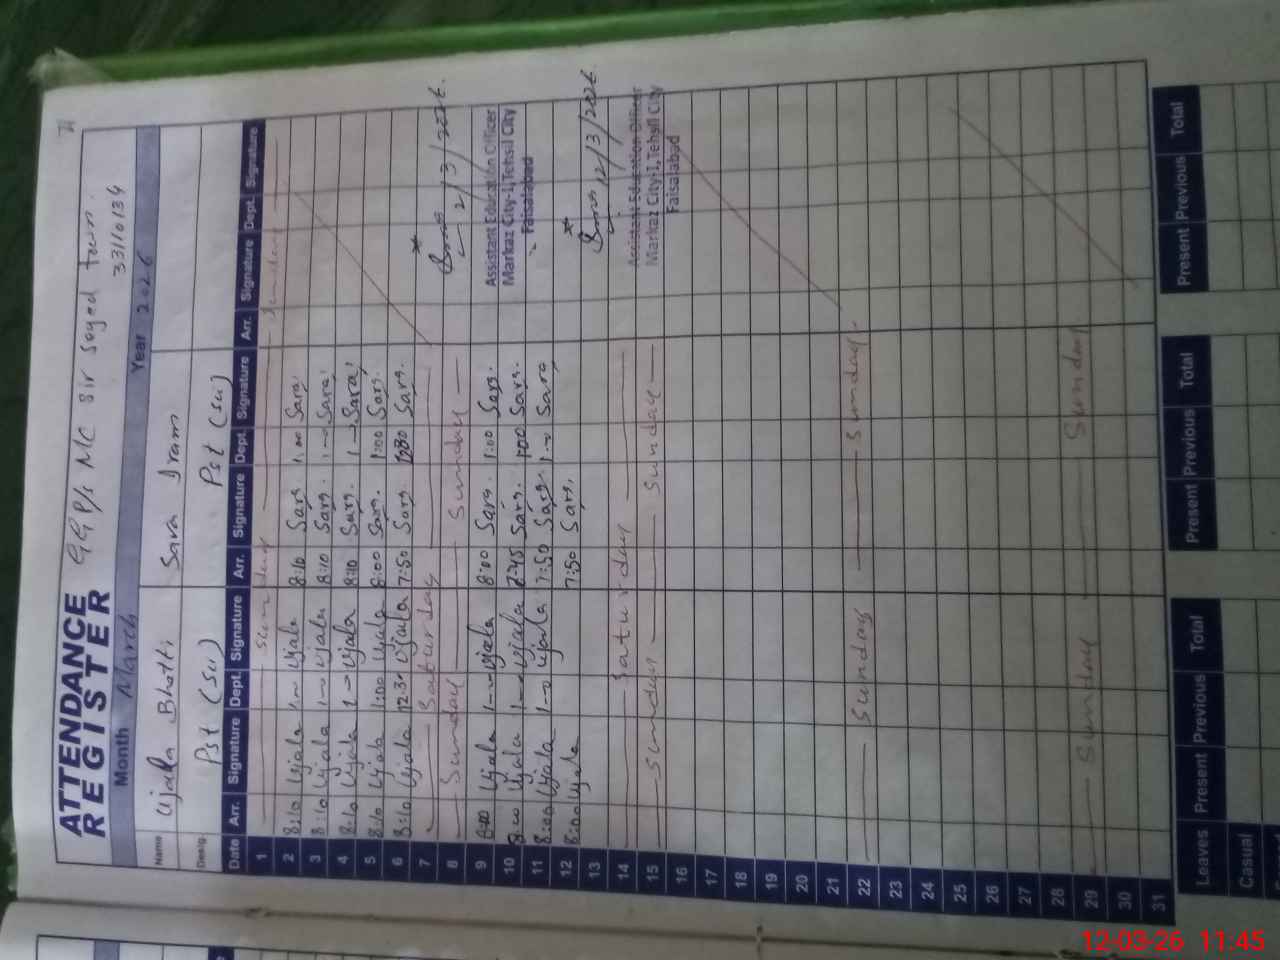 ATTENDANCE REGISTER GGP/s MC Sir Sayed town.
33110134
Month March Year 2026
Name Ujala Bhatti Sara Iram
Desig. Pst (SW) Pst (SW)
Date Arr. Signature Dept. Signature Arr. Signature Dept. Signature Arr. Signature Dept. Signature
1 Sunday Sunday
2 8:10 Ujala 1 Ujala 8:10 Sara 1 Sara
3 8:10 Ujala 1 Ujala 8:10 Sara 1 Sara
4 8:10 Ujala 1 Ujala 8:10 Sara 1 Sara
5 8:10 Ujala 1:00 Ujala 8:00 Sara 1:00 Sara
6 8:10 Ujala 12.30 Ujala 7:50 Sara 12:30 Sara
7 Saturday
8 Sunday Sunday 2/3/2026
9 8:00 Ujala 1 Ujala 8:00 Sara 1:00 Sara
Assistant Education Officer
10 8:00 Ujala 1 Ujala 7:45 Sara 1:00 Sara
Markaz City-I, Tehsil City
Faisalabad
11 8:00 Ujala 1 Ujala 7:50 Sara 1 Sara
12 8:00 Ujala 7:50 Sara
13 12/3/2026
14 Saturday
Assistant Education Officer
15 Sunday Sunday
Markaz City-I, Tehsil City
Faisalabad
16
17
18
19
20
21
22 Sunday Sunday
23
24
25
26
27
28
29 Sunday Sunday
30
31
Leaves Present Previous Total Present Previous Total Present Previous Total
Casual
12-03-26 11:45